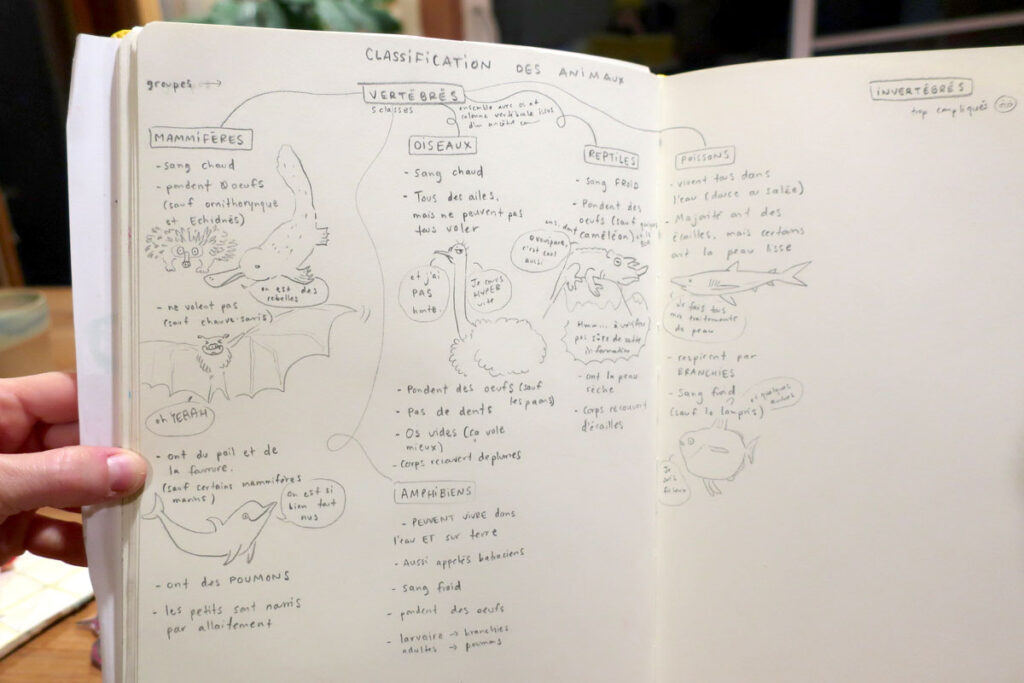 CLASSIFICATION DES ANIMAUX
groupes →
VERTÉBRÉS
5 classes
ensemble avec os et
colonne vertébrale issus
d'un ancêtre
MAMMIFÈRES
- sang chaud
- pondent 0 oeufs
(sauf ornithorynque
et Echidnés)
on est des
rebelles
- ne volent pas
(sauf chauve-souris)
oh YEEAH
- ont du poil et de
la fourrure.
(sauf certains mammifères
marins)
on est si
bien tout
nus
- ont des POUMONS
- les petits sont nourris
par allaitement
OISEAUX
- sang chaud
- Tous des ailes,
mais ne peuvent pas
tous voler
et j'ai
PAS
honte.
Je cours
HYPER
vite
- Pondent des oeufs (sauf
les paons)
- Pas de dents
- Os vides (ça vole
mieux)
- Corps recouvert de plumes
AMPHIBIENS
- PEUVENT VIVRE dans
l'eau ET sur terre
- Aussi appelés batraciens
- sang froid
- pondent des oeufs
- larvaire → branchies
adultes → poumons
REPTILES
- sang FROID
- Pondent des
oeufs (sauf
caméléon)
Ovovipare,
c'est cool
aussi
Hmm... à vérifier
pas sûre de cette
information
- ont la peau
sèche
- Corps recouvert
d'écailles
POISSONS
- vivent tous dans
l'eau (douce ou salée)
- Majorité ont des
écailles, mais certains
ont la peau lisse
Je fais tous
mes traitements
de peau
- respirent par
BRANCHIES
- Sang froid
(sauf le lampris)
et quelques
autres
Je
suis
INVERTÉBRÉS
trop compliqués